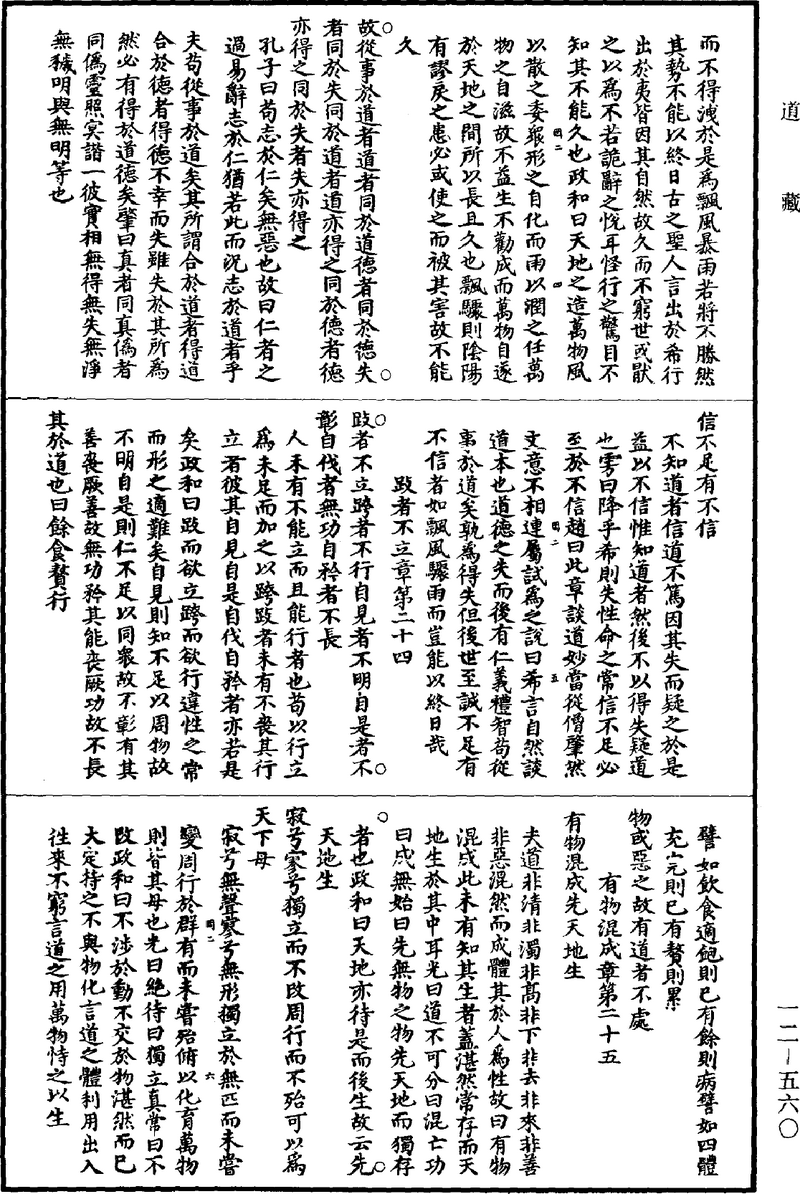 道藏
而不得洩於是為飄風暴雨若將不勝然
其勢不能以終日古之聖人言出於希行
出於夷皆因其自然故久而不窮世或猒
之以為不若詭辭之悅耳怪行之驚目不
知其不能久也政和曰天地之造萬物風
以散之委衆形之自化而雨以潤之任萬
物之自滋故不益生不勸成而萬物自遂
於天地之間所以長且久也飄驟則陰陽
有謬戾之患必或使之而被其害故不能
久
故從事於道者道者同於道德者同於德失
者同於失同於道者道亦得之同於德者德
亦得之同於失者失亦得之
孔子曰苟志於仁矣無惡也故曰仁者之
過易辭志於仁猶若此而況志於道者乎
夫苟從事於道矣其所謂合於道者得道
合於德者得德不幸而失雖失於其所為
然必有得於道德矣肇曰真者同真偽者
同偽靈照冥諧一彼實相無得無失無淨
無穢明與無明等也
信不足有不信
不知道者信道不篤因其失而疑之於是
益以不信惟知道者然後不以得失疑道
也雱曰降乎希則失性命之常信不足必
至於不信趙曰此章談道妙當從僧肇然
文意不相連屬試為之說曰希言自然談
道本也道德之失而後有仁義禮智苟從
事於道矣孰為得失但後世至誠不足有
不信者如飄風驟雨而豈能以終日哉
跂者不立章第二十四
跂者不立跨者不行自見者不明自是者不
彰自伐者無功自矜者不長
人未有不能立而且能行者也苟以行立
為未足而加之以跨跂者未有不喪其行
立者彼其自見自是自伐自矜者亦若是
矣政和曰跂而欲立跨而欲行違性之常
而形之適難矣自見則知不足以周物故
不明自是則仁不足以同衆故不彰有其
善喪厥善故無功矜其能喪厥功故不長
其於道也曰餘食贅行
譬如飲食適飽則已有餘則病譬如四體
充完則已有贅則累
物或惡之故有道者不處
有物混成章第二十五
有物混成先天地生
夫道非清非濁非高非下非去非來非善
非惡混然而成體其於人為性故曰有物
混成此未有知其生者蓋湛然常存而天
地生於其中耳光曰道不可分曰混亡功
曰成無始曰先無物之物先天地而獨存
者也政和曰天地亦待是而後生故云先
天地生
寂兮寥兮獨立而不改周行而不殆可以為
天下母
寂兮無聲寥兮無形獨立於無匹而未嘗
變周行於群有而未嘗殆俯以化育萬物
則皆其母也光曰絕待曰獨立真常曰不
改政和曰不涉於動不交於物湛然而已
大定持之不與物化言道之體利用出入
往來不窮言道之用萬物恃之以生
一二—五六〇